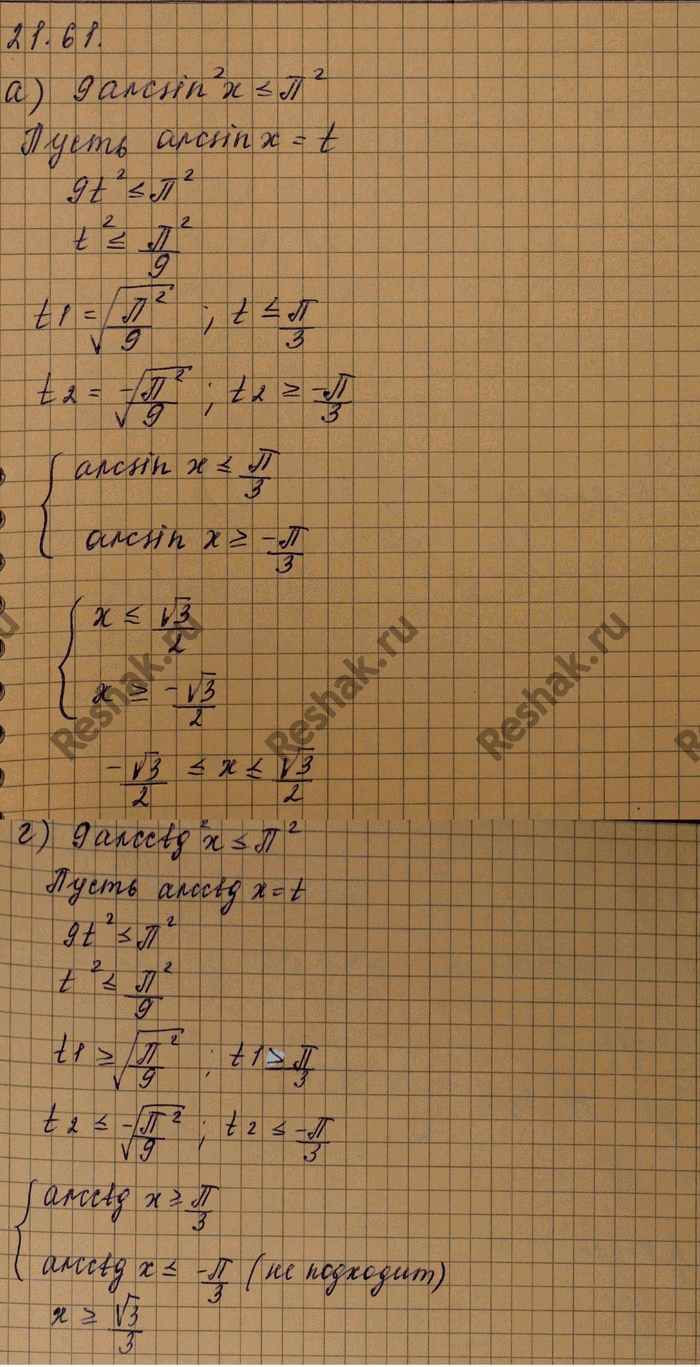 21.61.
а) 9arcsin²x ≤ π²
Пусть arcsin x = t
9t² ≤ π²
t² ≤ π²/9
t1 = √(π²/9) ; t ≤ π/3
t2 = -√(π²/9) ; t2 ≥ -π/3
{ arcsin x ≤ π/3
arcsin x ≥ -π/3
{ x ≤ √3/2
x ≥ -√3/2
Reshak.ru Reshak.ru Reshak.ru
-√3/2 ≤ x ≤ √3/2
г) 9arcctg²x ≤ π²
Пусть arcctg x = t
9t² ≤ π²
t² ≤ π²/9
t1 ≥ √(π²/9) ; t1 ≥ π/3
t2 ≤ -√(π²/9) ; t2 ≤ -π/3
{ arcctg x ≥ π/3
arcctg x ≤ -π/3 (не подходит)
x ≥ √3/3